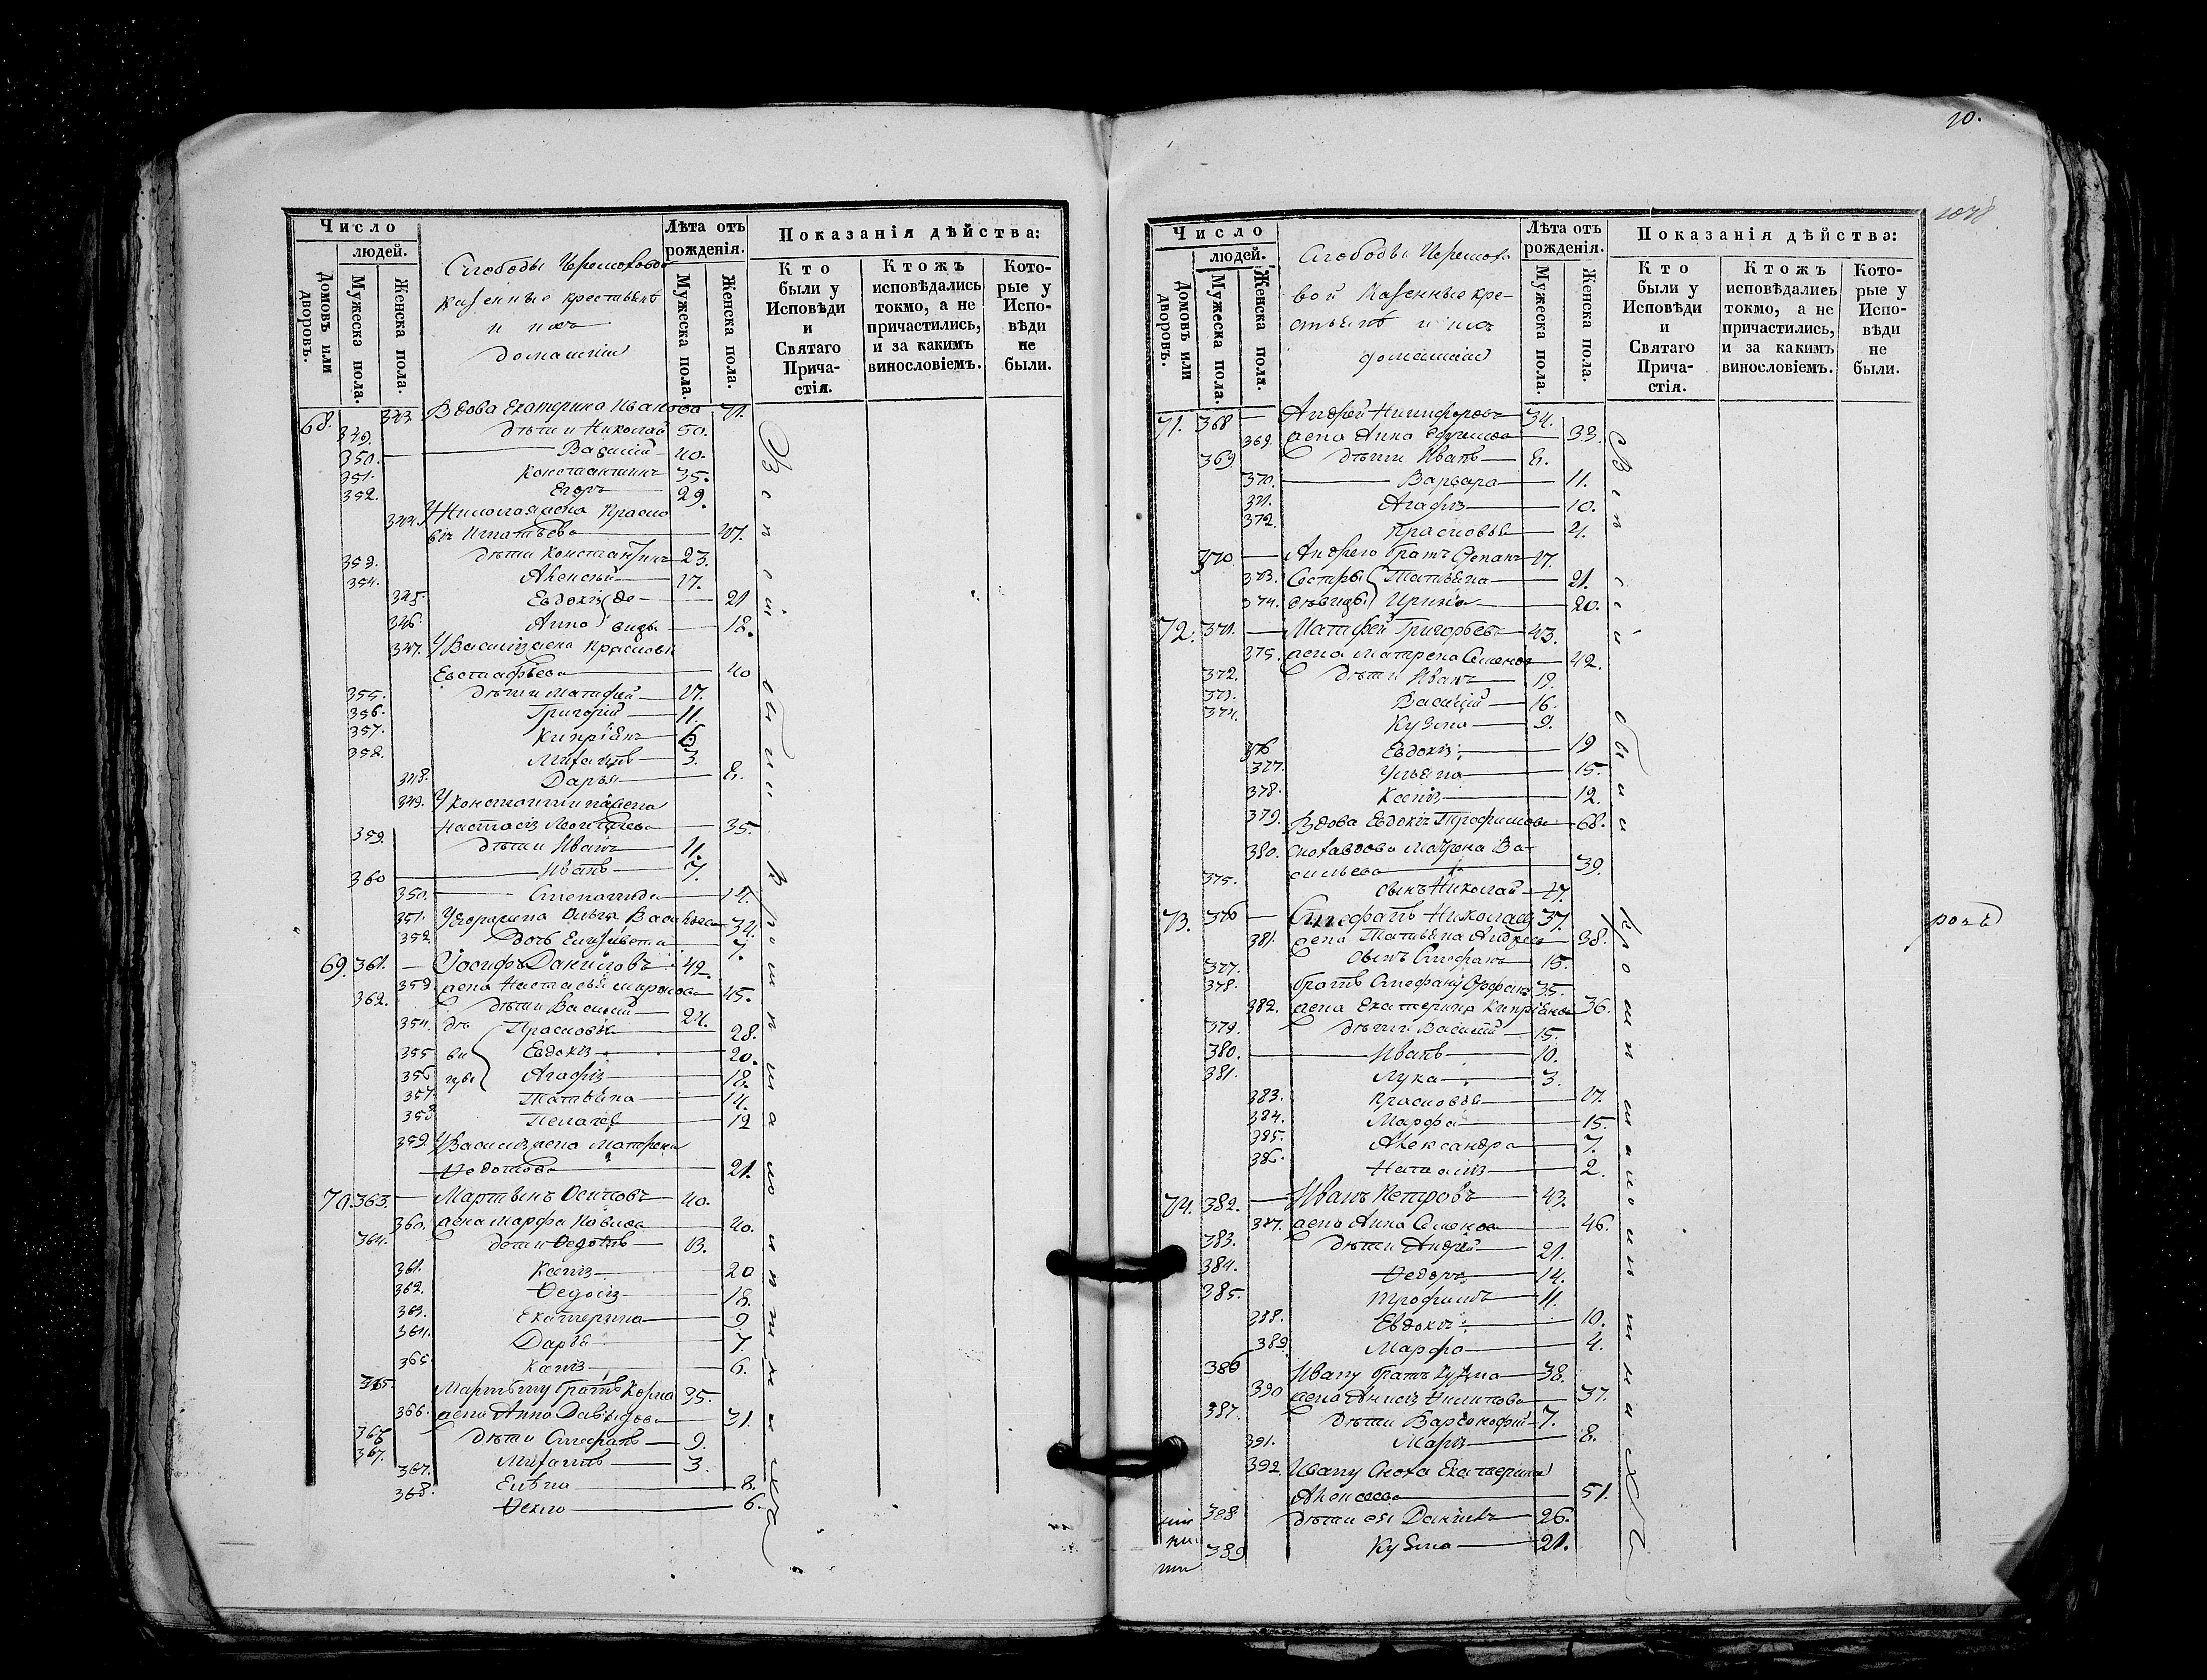 Число
людей.
Домовъ или дворовъ.
Мужеска пола.
Женска пола.
Слободы Черемховой
казенные крестьянѣ
и ихъ
домашніи
Лѣта отъ рожденія.
Мужеска пола.
Женска пола.
Показанія дѣйства:
Кто были у Исповѣди и Святаго Причастія.
Ктожъ исповѣдались токмо, а не причастились, и за какимъ винословіемъ.
Которые у Исповѣди не были.
68. 343 Вдова Екатерина Иванова 71.
349. дѣти Николай 50.
350. Василій 40.
351. Константинъ 35.
352. Егоръ 29.
344. У Николая жена Краско
віа Игнатьева 47.
353. дѣти Константинъ 23.
354. Алексѣй 17.
345. Евдокія де 21
346. Анна вицы 18.
347. У Василія жена Красковья
Евстафьева 40
355. дѣти Матфей 17.
356. Григорій 11.
357. Кипріянъ 6.
358. Михаилъ 3.
348. Дарья 8.
349. У Константина жена
Настасія 35.
359. дѣти Иванъ 11.
360 Иванъ 7.
350. Степанида 14.
351. У Егора жена Ольга Васильева 34.
352 дочь Елизавета 7.
69. 361. Іосифъ Даниловъ 49
353. жена Настасья Миронова 45.
362. дѣти Василій 24.
354. дѣ Прасковья 28.
355 ви Евдокія 20.
356 цы Агафія 18.
357. Татьяна 14.
358. Пелагея 12
359. У Василія жена Матрена
Федотова 21.
70. 363. Мартынъ Осиповъ 40.
360. жена Марфа Павлова 40.
364. дети Федотъ 13.
361. Ксенія 20
362. Федосія 18.
363. Екатерина 9
364. Дарья 7.
365. Ксенія 6.
365. Мартыну братъ Козма 35.
366. жена Анна Давыдова 31.
366 дѣти Стефанъ 9.
367. Михаилъ 3.
367. Елена 8.
368. Фекла 6.
Всѣ
были
10.
Число
людей.
Домовъ или дворовъ.
Мужеска пола.
Женска пола.
Слободы Черемхо
вой казенные кре-
стьянѣ и ихъ
домашніи
Лѣта отъ рожденія.
Мужеска пола.
Женска пола.
Показанія дѣйства:
Кто были у Исповѣди и Святаго Причастія.
Ктожъ исповѣдались токмо, а не причастились, и за какимъ винословіемъ.
Которые у Исповѣди не были.
71. 368 Андрей Никифоровъ 34.
369. жена Анна Ефимова 33.
369. дѣти Иванъ 8.
370. Варвара 11.
371. Агафія 10.
372. Прасковья 4.
370 Андрею братъ Степанъ 17.
373. Сестры Татьяна 21.
374. дѣвицы Ирина 20.
72. 371. Матфей Григорьевъ 43.
375. жена Матрена Семенова 42.
372. дѣти Иванъ 19.
373. Василій 16.
374. Кузма 9.
376 Евдокія 19
377. Ульяна 15.
378. Ксенія 12.
379. Вдова Евдокія Трофимова 68.
380. сноха вдова Матрена Ва-
сильева 39.
375. сынъ Николай 17.
73. 376 Стефанъ Николаевъ 37.
381. жена Татьяна Андреева 38.
377. сынъ Стефанъ 15.
378. братъ Стефану 35.
382. жена Екатерина Кипріянова 36.
379. дѣти Василій 15.
380. Иванъ 10.
381. Лука 3.
383. Прасковья 17.
384. Марфа 15.
385. Александра 7.
386. Наталія 2.
74. 382. Иванъ Петровъ 43.
387. жена Анна Семенова 46.
383. дѣти Андрей 21.
384. Федоръ 14.
385. Трофимъ 11.
388. Евдокія 10.
389. Марфа 4.
386 Ивану братъ Кузма 38.
390 жена Анисія Филипова 37.
387. дѣти Варсонофій 7.
391. Марія 8.
392. Ивану сноха Екатерина
Алексеева 51.
388 дѣти ея Данилъ 26.
389 Кузма 21.
Всѣ
были